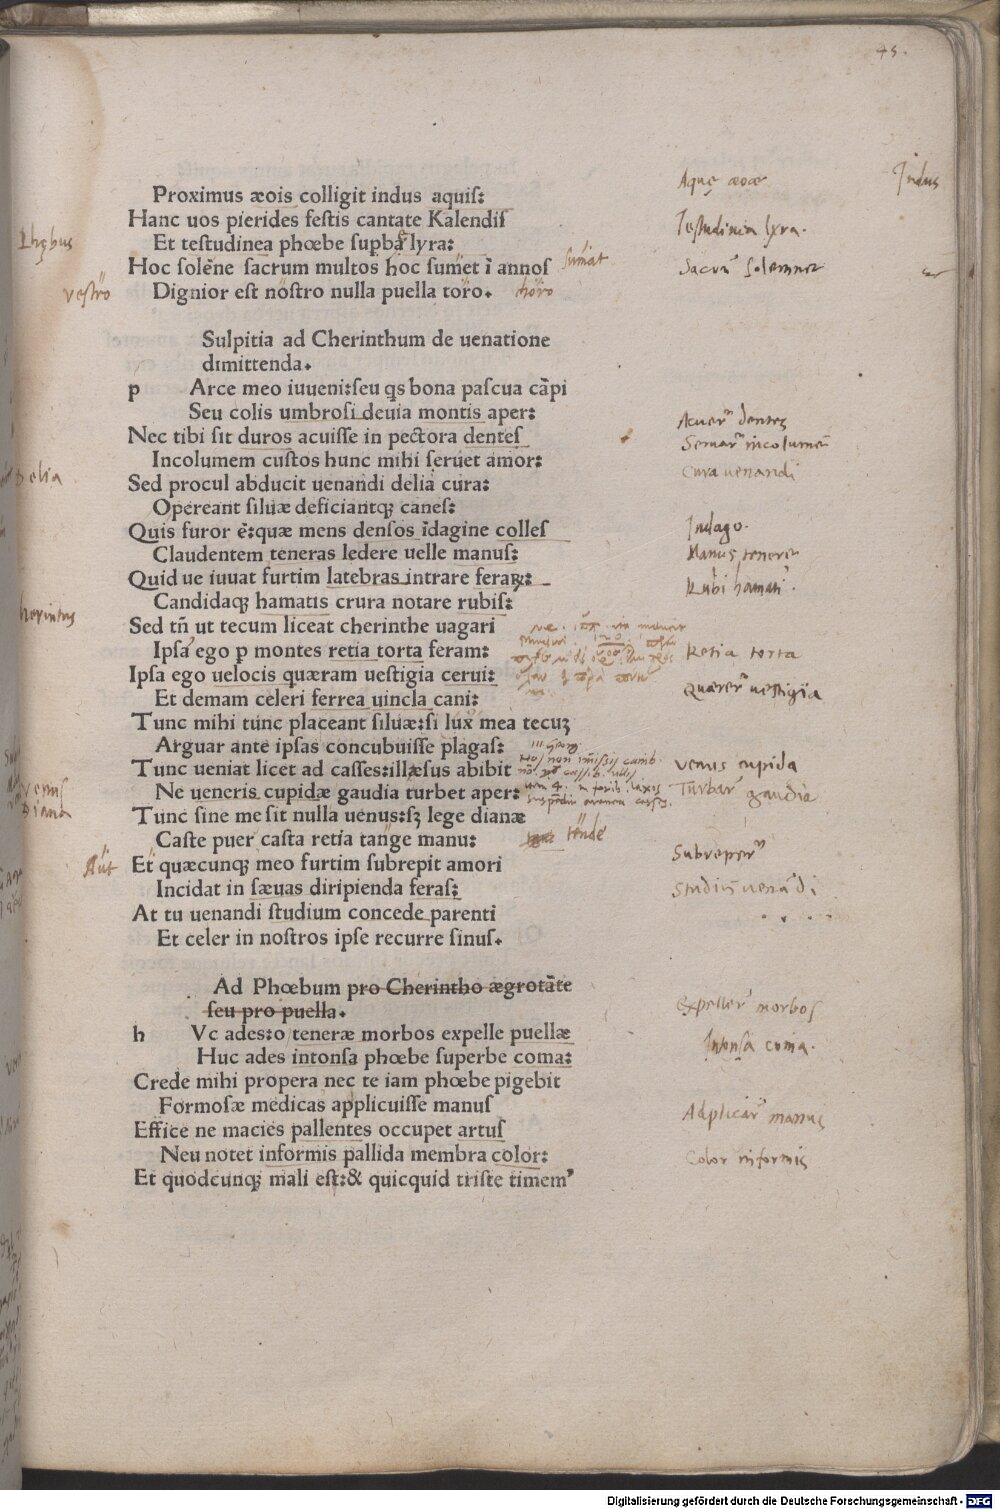 45.
Proximus æois colligit indus aquiſ:
Hanc uos pierides feſtis cantate Kalendiſ
Et teſtudinea phœbe ſupba lyra:
Hoc ſolēne ſacrum multos hoc ſumet ī annoſ
Dignior eſt noſtro nulla puella toro.
Sulpitia ad Cherinthum de uenatione
dimittenda.
p Arce meo iuueni:ſeu qs bona paſcua cāpi
Seu colis umbroſi deuia montis aper:
Nec tibi ſit duros acuiſſe in pectora denteſ
Incolumem cuſtos hunc mihi ſeruet amor:
Sed procul abducit uenandi delia cura:
Opereant ſiluæ deficiantqꝫ caneſ:
Quis furor ē:quæ mens denſos īdagine colleſ
Claudentem teneras ledere uelle manuſ:
Quid ue iuuat furtim latebras intrare feraꝝ:
Candidaqꝫ hamatis crura notare rubiſ:
Sed tñ ut tecum liceat cherinthe uagari
Ipſa ego p montes retia torta feram:
Ipſa ego uelocis quæram ueſtigia cerui:
Et demam celeri ferrea uincla cani:
Tunc mihi tunc placeant ſiluæ:ſi lux mea tecuꝫ
Arguar ante ipſas concubuiſſe plagaſ:
Tunc ueniat licet ad caſſes:illæſus abibit
Ne ueneris cupidæ gaudia turbet aper:
Tunc ſine me ſit nulla uenus:ſꝫ lege dianæ
Caſte puer caſta retia tange manu:
Et quæcunqꝫ meo furtim ſubrepit amori
Incidat in ſæuas diripienda feraſ:
At tu uenandi ſtudium concede parenti
Et celer in noſtros ipſe recurre ſinuſ.
Ad Phœbum pro Cherintho ægrotāte
ſeu pro puella.
h Vc ades:o teneræ morbos expelle puellæ
Huc ades intonſa phœbe ſuperbe coma:
Crede mihi propera nec te iam phœbe pigebit
Formoſæ medicas applicuiſſe manuſ
Effice ne macies pallentes occupet artuſ
Neu notet informis pallida membra color:
Et quodcunqꝫ mali eſt:& quicquid triſte timem⁹
Phębus
vestro
Delia
Venus
Diana
Aut
sumat
choro
tende
Aquę æoæ
Indus
Testudinia lyra.
Sacrū solemne
Acuer̄ dentes
Seruar̄ incolumē
Cura uenandi
Indago.
Manus tenere
Rubi hamati.
Retia torta
Quærer̄ uestigia
venus cupida
Turbar̄ gaudia
Subreper̄
Studiū uenādi
Expeller̄ morbos
Intonsa coma.
Adplicar̄ manus
Color informis
Digitalisierung gefördert durch die Deutsche Forschungsgemeinschaft - DFG